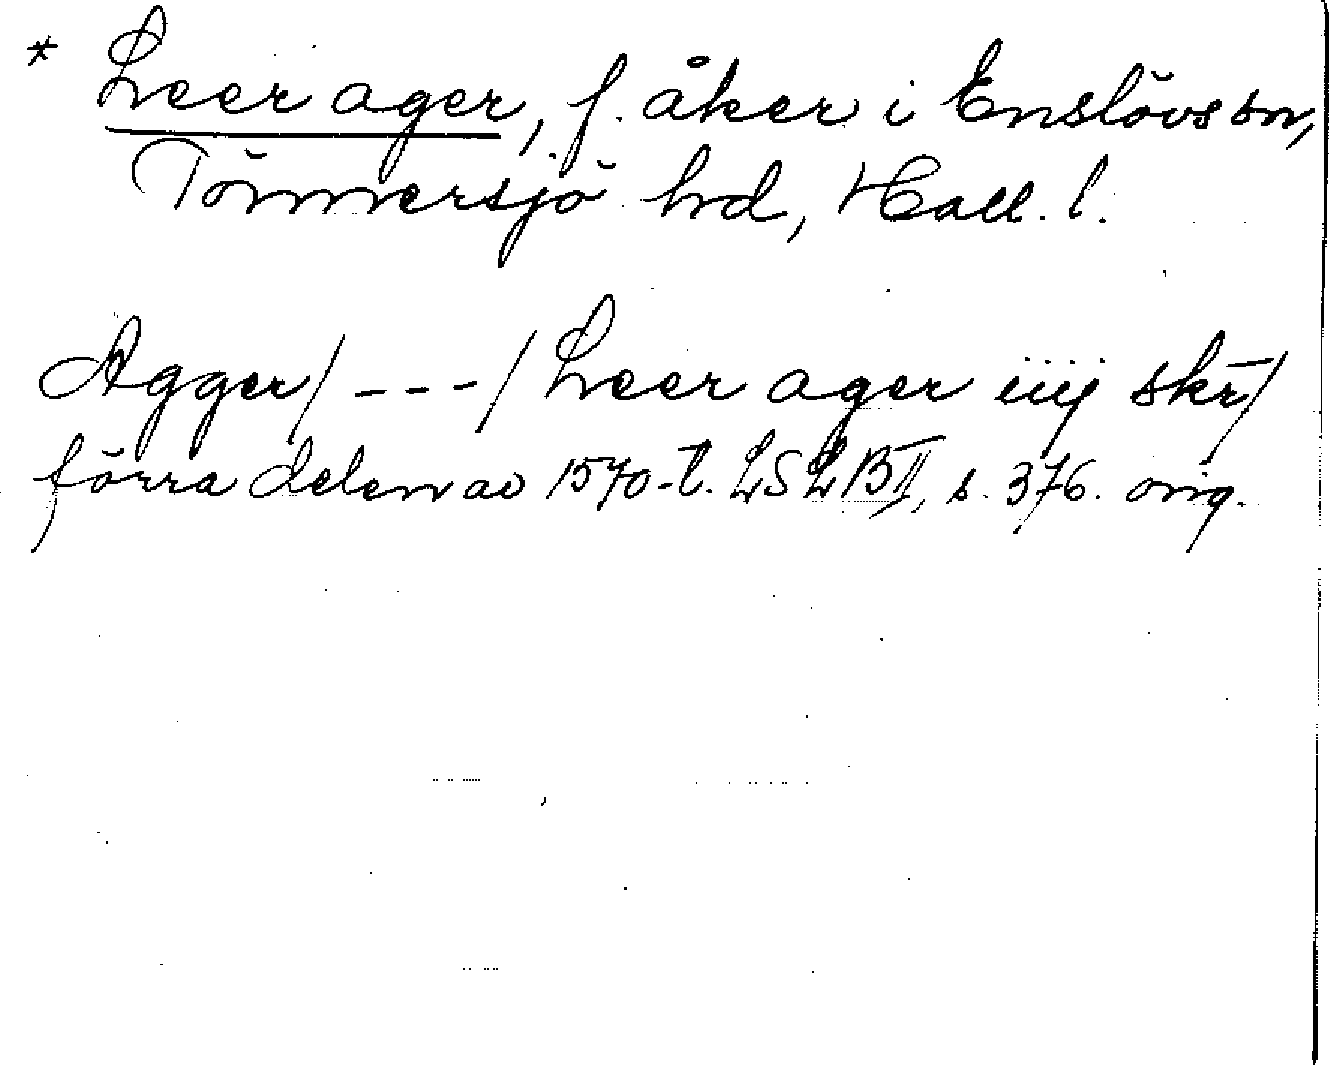 * Leer ager, f. åker i Enslövs sn,
Tönnersjö hd, Hall. l.
Agger/ - - - / Leer ager iiij skr̄/
förra delen av 1570-t. LSLB II, s. 376. orig.